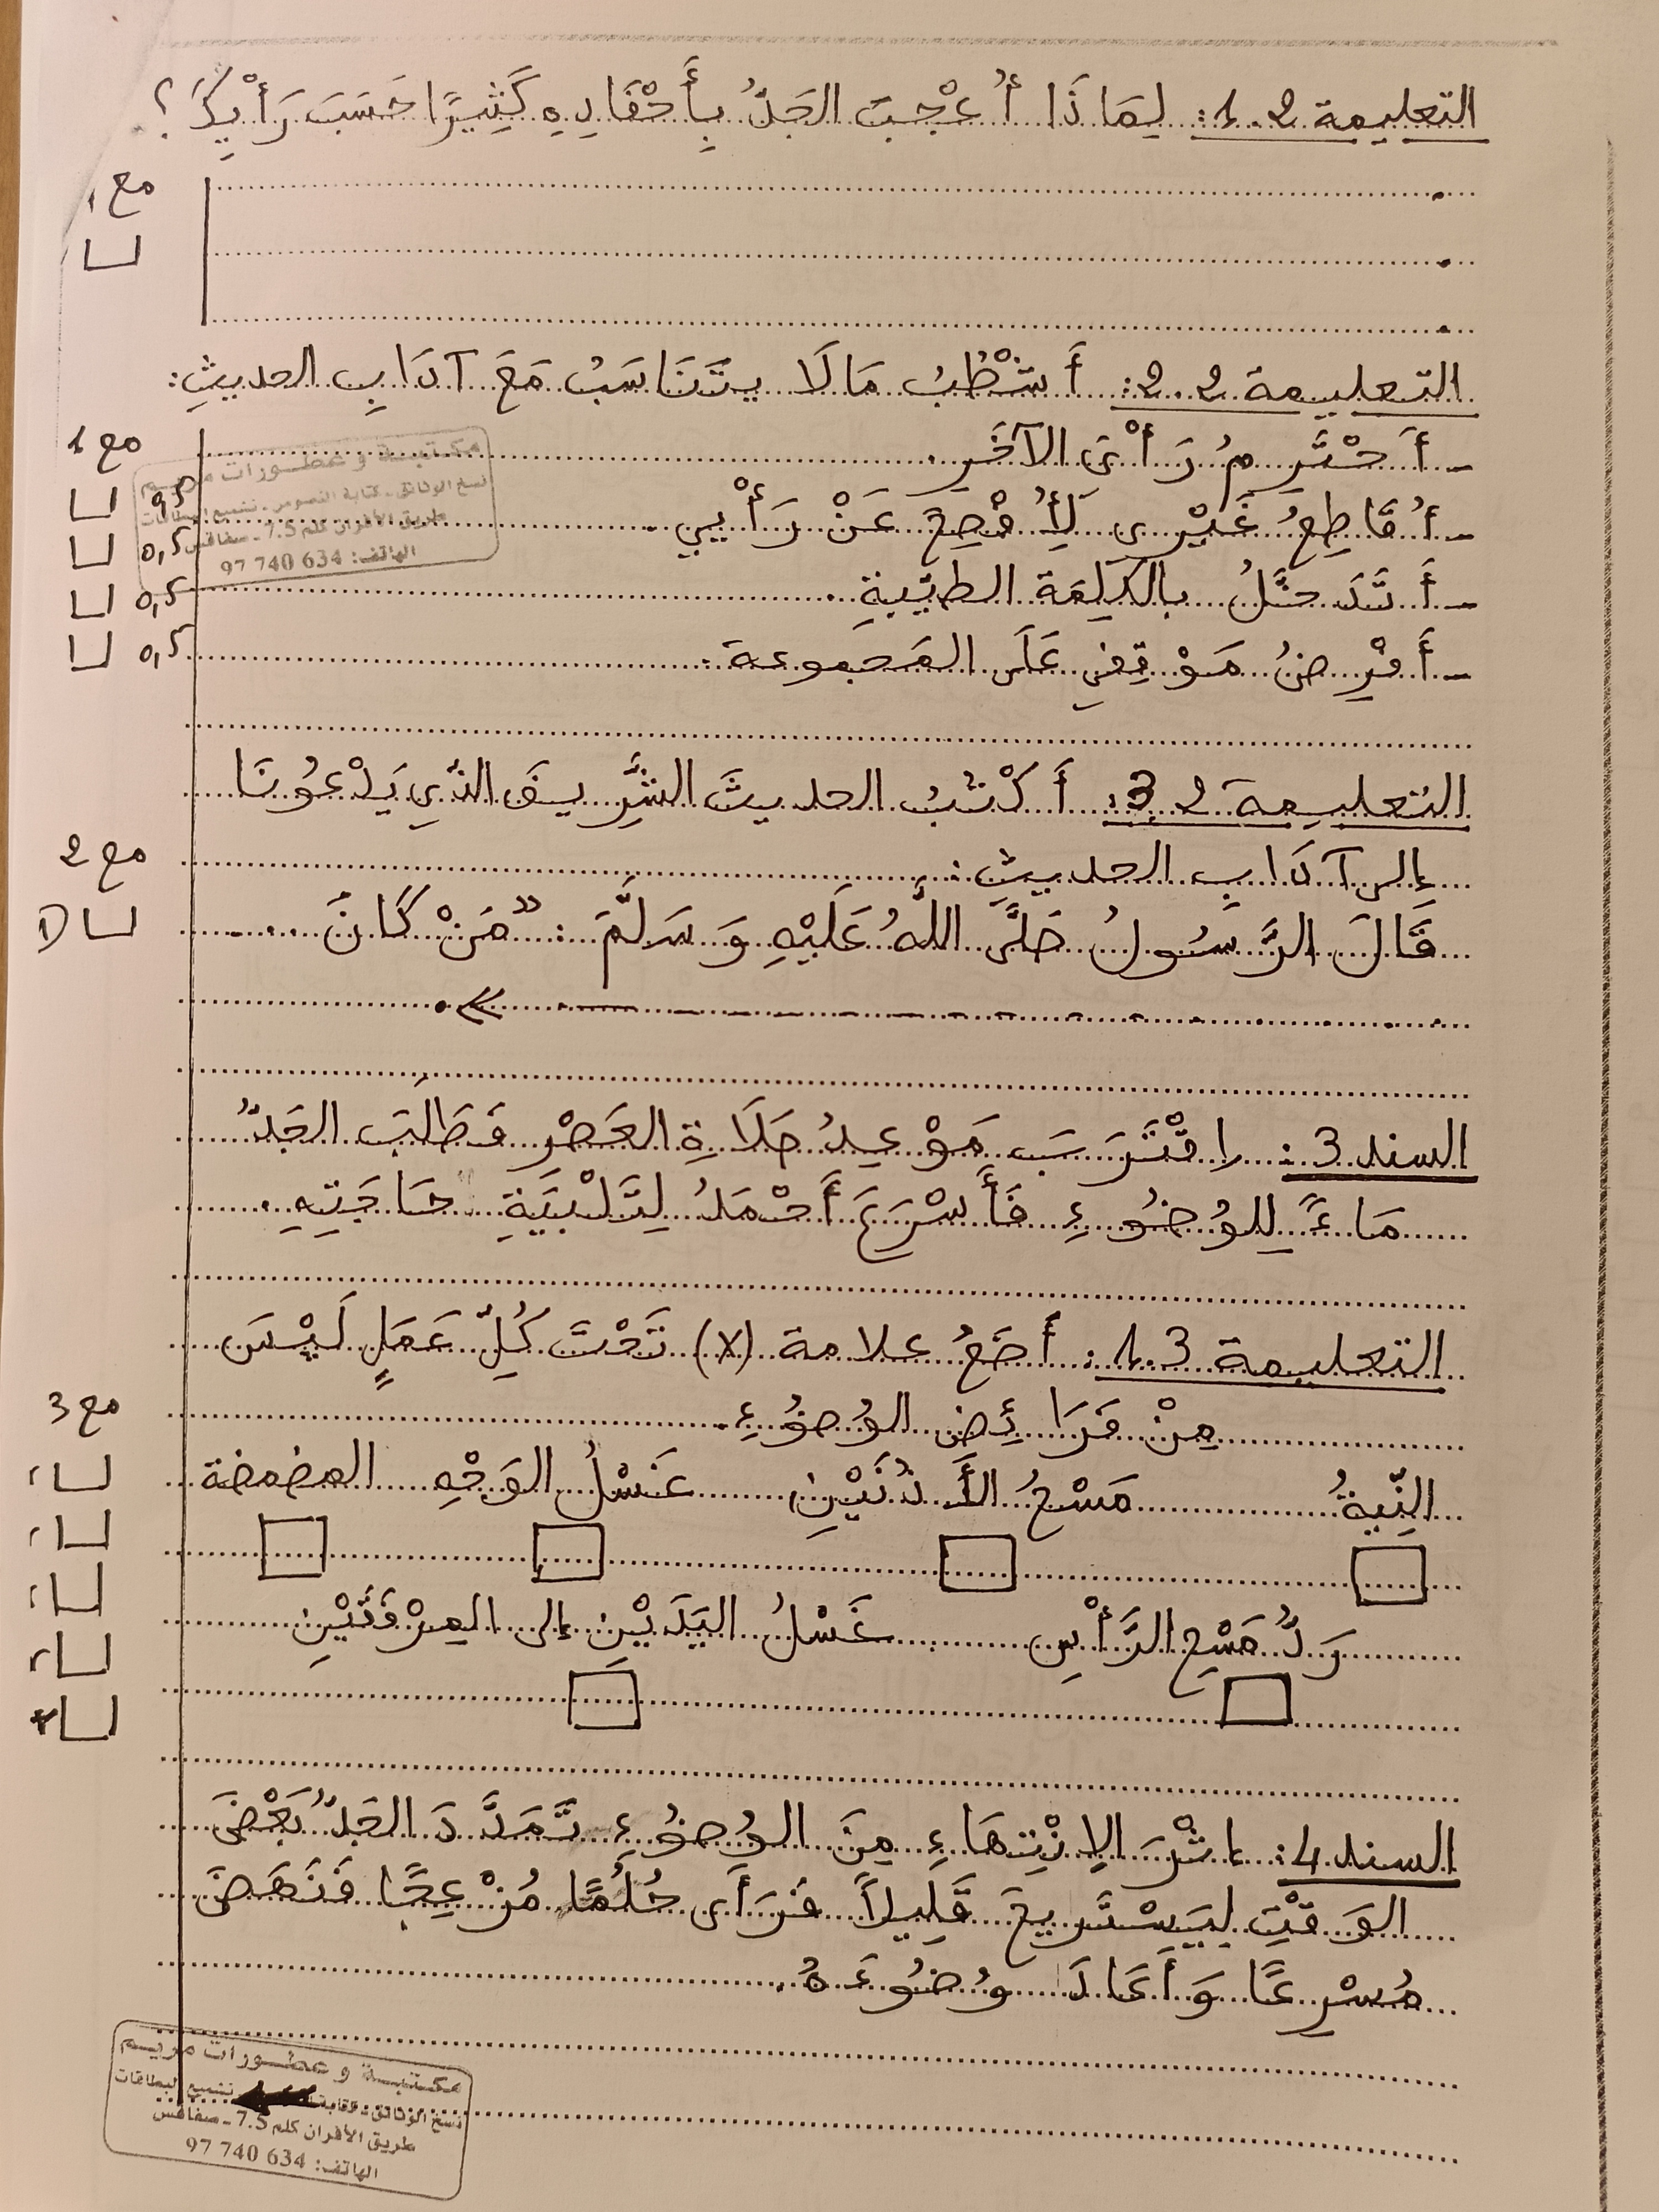 التعليمة 2.1: لِمَاذَا أُعْجِبَ الجَدُّ بِأَحْفَادِهِ كَثِيرًا حَسَبَ رَأْيِكَ؟
مع 1
التعليمة 2.2: أَشْطُبُ مَا لَا يَتَنَاسَبُ مَعَ آدَابِ الحديثِ:
مع 1
ـ أَحْتَرِمُ رَأْيَ الآخَرِ.
ـ أُقَاطِعُ غَيْرِي لِأُفْصِحَ عَنْ رَأْيِي. 0,5
ـ أَتَدَخَّلُ بالكَلِمَةِ الطيّبةِ. 0,5
0,5
ـ أَفْرِضُ مَوْقِفِي عَلَى المَجموعة. 0,5
مكتبة و عطورات مريم
نسخ الوثائق - كتابة النصوص - تشميع البطاقات
طريق الأفران كلم 7.5 - صفاقس
الهاتف: 97 740 634
التعليمة 2.3: أَكْتُبُ الحديثَ الشَّرِيفَ الذِي يَدْعُونَا
إلى آدَابِ الحديثِ:
مع 2
قَالَ الرَّسُولُ صَلَّى اللَّهُ عَلَيْهِ وَسَلَّمَ: «مَنْ كَانَ ....
................ ».
السند 3: اِقْتَرَبَ مَوْعِدُ صَلَاةِ العَصْرِ فَطَلَبَ الجَدُّ
مَاءً لِلوُضُوءِ فَأَسْرَعَ أَحْمَدُ لِتَلْبِيَةِ حَاجَتِهِ.
التعليمة 3.1: أَضَعُ علامة (x) تَحْتَ كُلِّ عَمَلٍ لَيْسَ
مِنْ فَرَائِضِ الوُضُوءِ.
مع 3
النِّيةُ مَسْحُ الأُذُنَيْنِ غَسْلُ الوَجْهِ المضمضة
رَدُّ مَسْحِ الرَّأْسِ غَسْلُ اليَدَيْنِ إلى المِرْفَقَيْنِ
السند 4: إثْرَ الاِنْتِهَاءِ مِنَ الوُضُوءِ تَمَدَّدَ الجَدُّ بَعْضَ
الوَقْتِ لِيَسْتَرِيحَ قَلِيلاً فَرَأَى حُلُمًا مُزْعِجًا فَنَهَضَ
مُسْرِعًا وَأَعَادَ وُضُوءَهُ.
مكتبة و عطورات مريم
نسخ الوثائق - تشميع البطاقات
طريق الأفران كلم 7.5 - صفاقس
الهاتف: 97 740 634